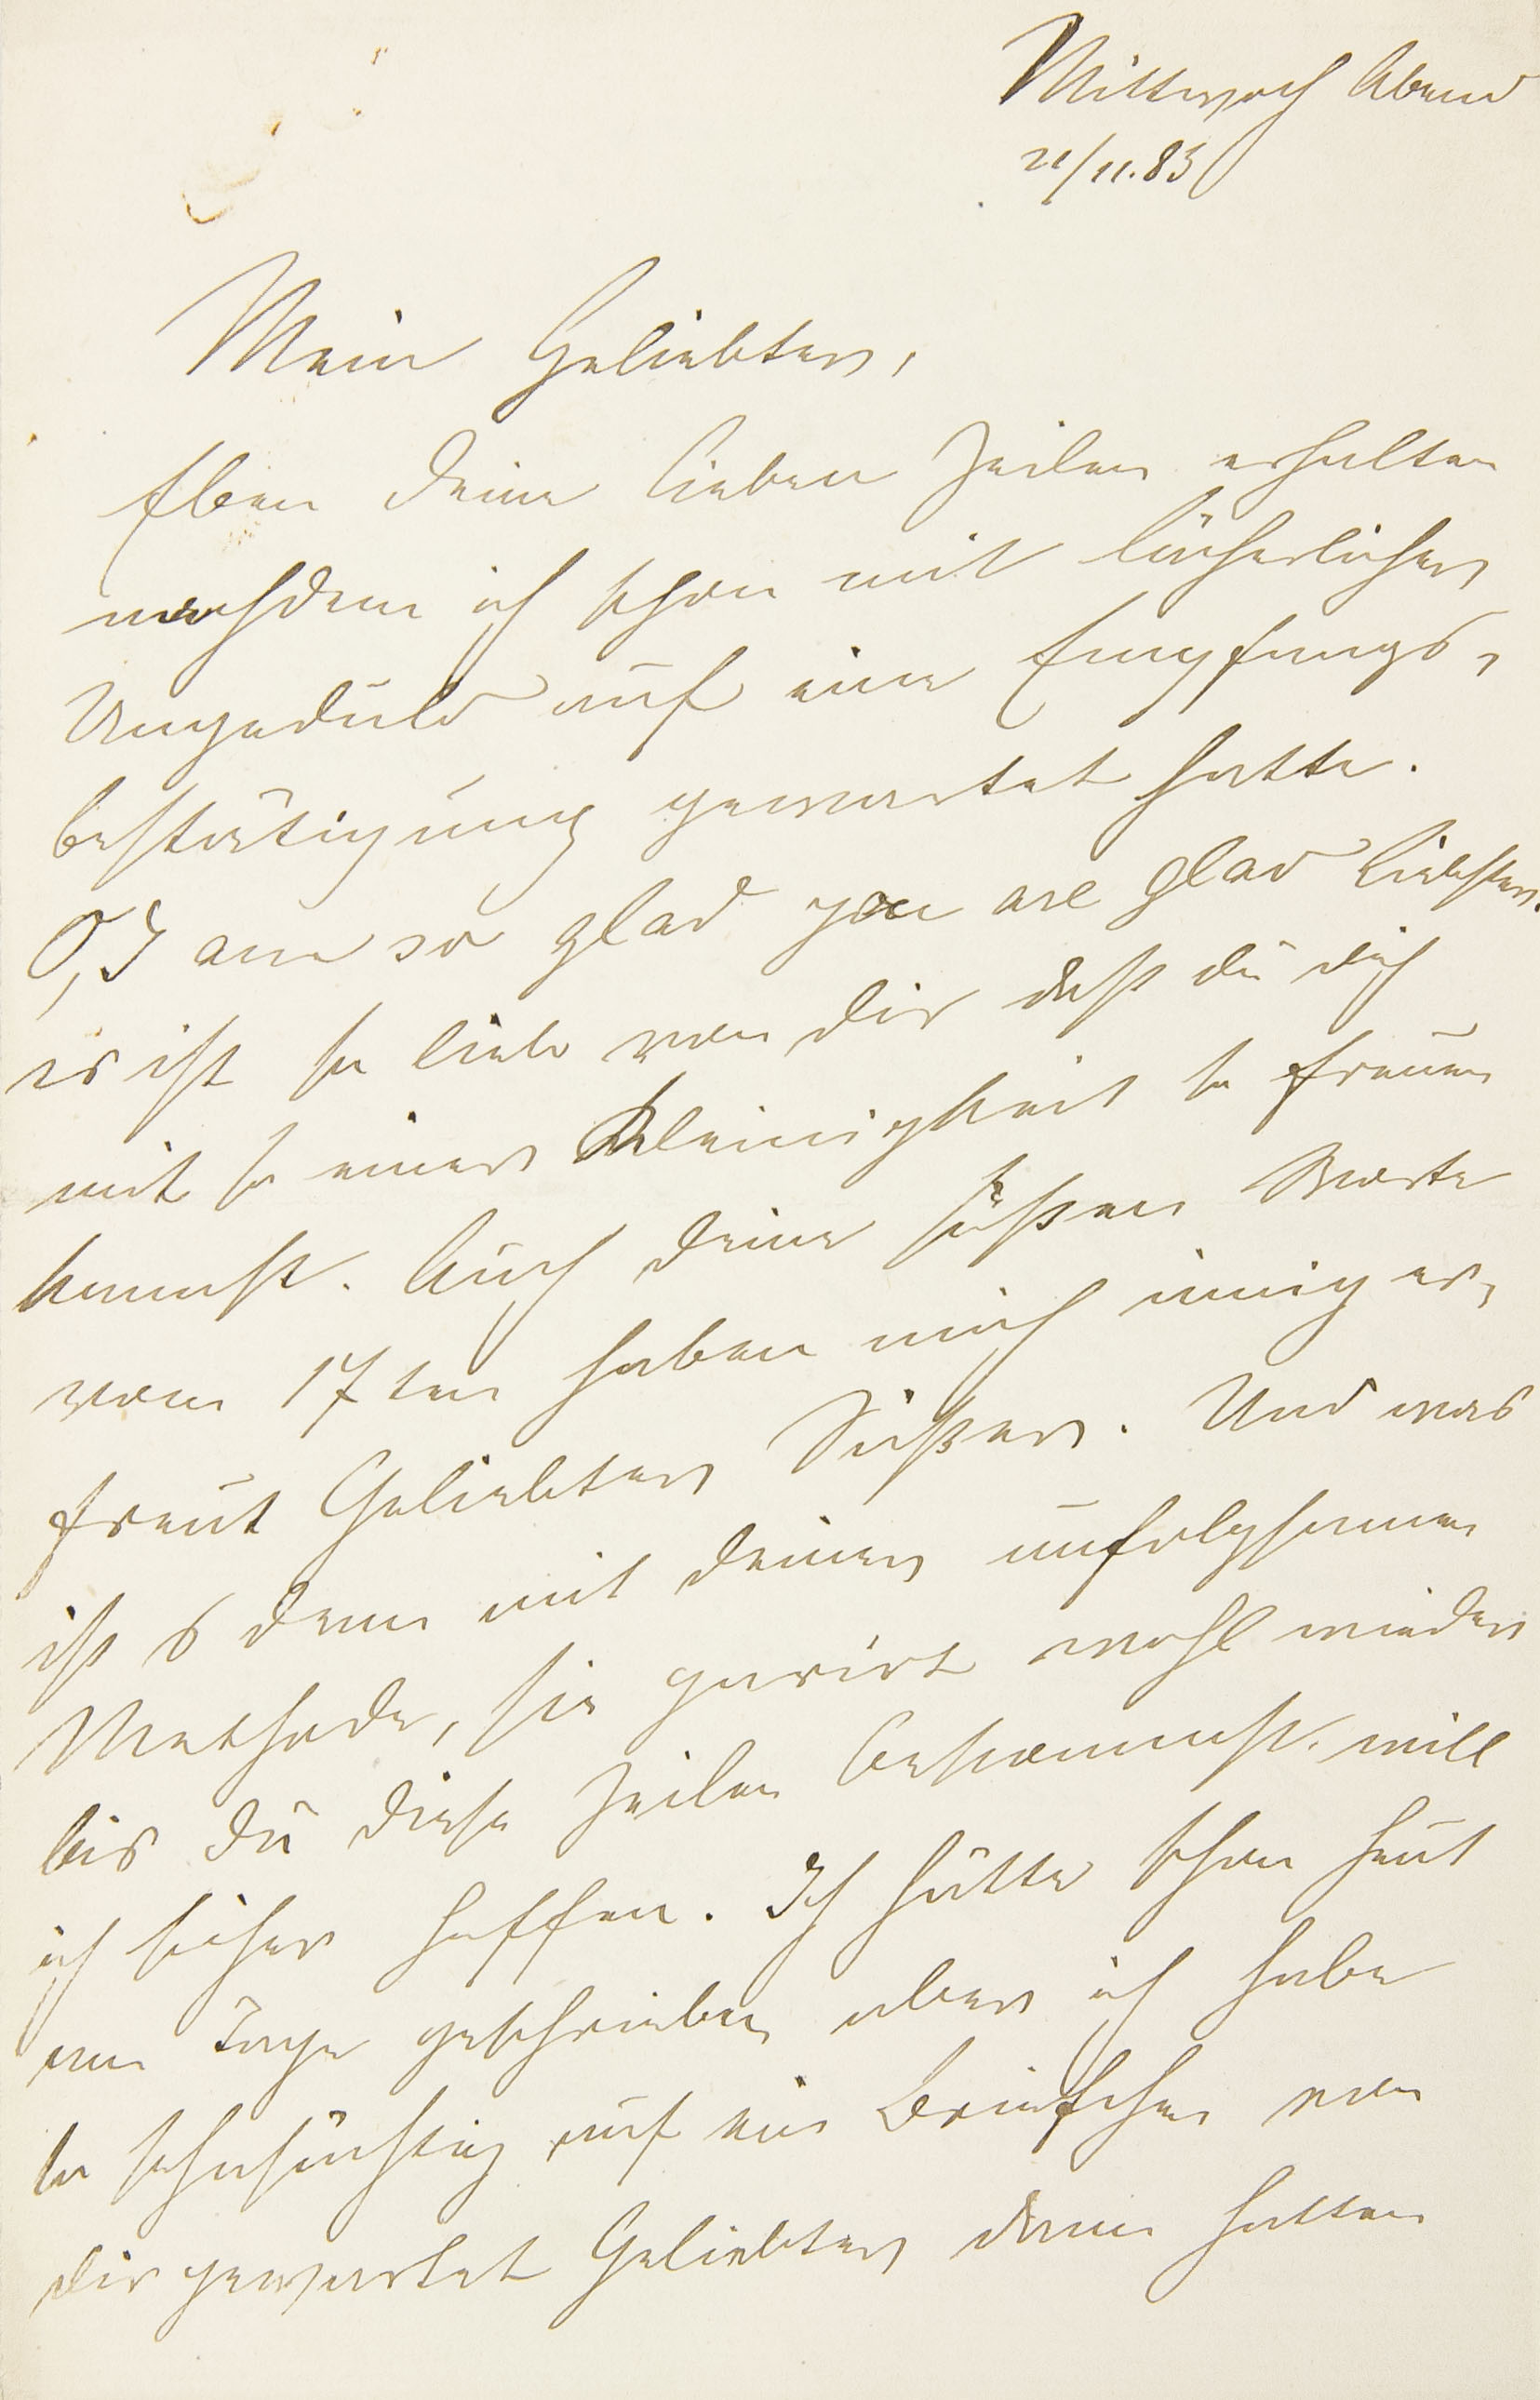 Mittwoch Abend
21/11.83
Mein Geliebter,
Eben deine lieben Zeilen erhalten
nachdem ich schon mit lächerlicher
Ungeduld auf eine Empfangs-
bestätigung gewartet hatte.
O, I am so glad you are glad Liebster.
es ist so lieb von dir daß du dich
mit so einer Kleinigkeit so freuen
kannst. Auch deine süßen Worte
vom 17ten haben mich innig er-
freut Geliebter Süßer. Und was
ist s denn mit deiner unfolgsamen
Methode, sie parirt wohl wieder
bis du diese Zeilen bekommst. will
ich sicher hoffen. Ich hätte schon heut
am Tage geschrieben aber ich habe
so sehnsüchtig auf ein Briefchen von
dir gewartet Geliebter dann hatten